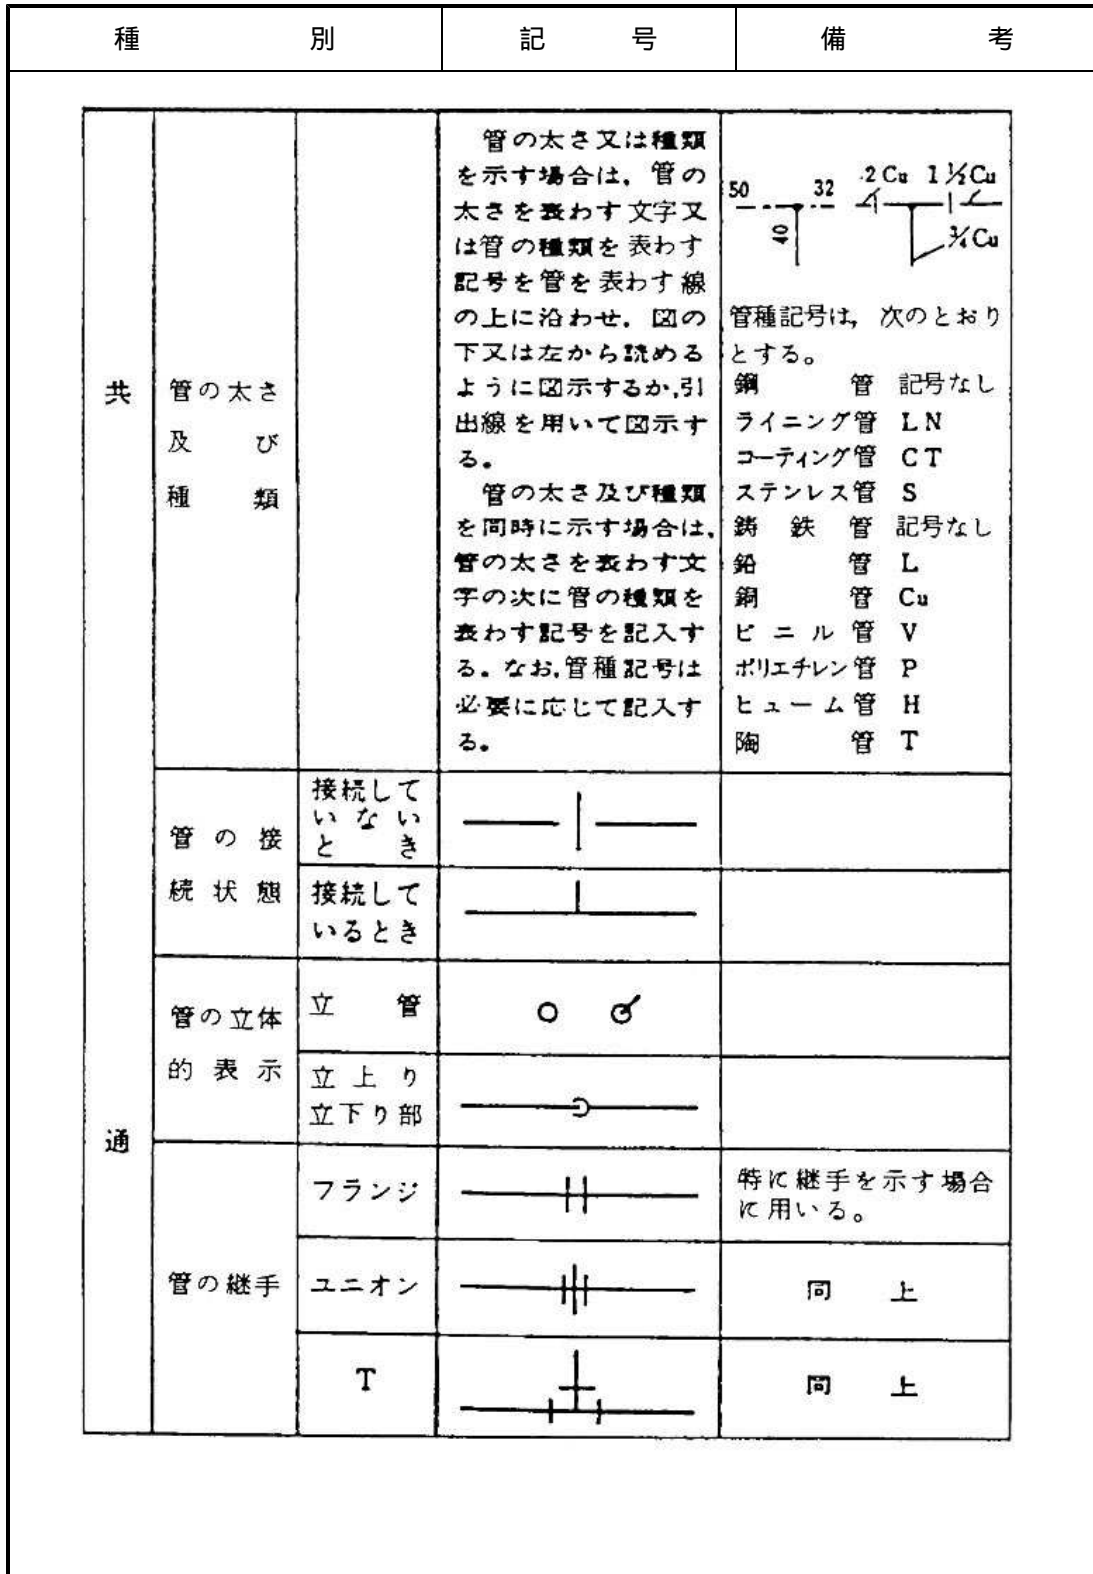 種 別 記 号 備 考
共
通
管の太さ
及 び
種 類
管の太さ又は種類
を示す場合は、管の
太さを表わす文字又
は管の種類を表わす
記号を管を表わす線
の上に沿わせ、図の
下又は左から読める
ように図示するか、引
出線を用いて図示す
る。
管の太さ及び種類
を同時に示す場合は、
管の太さを表わす文
字の次に管の種類を
表わす記号を記入す
る。なお、管種記号は
必要に応じて記入す
る。
50 32 2 Cu 1 ½Cu
40 ¾Cu
管種記号は、次のとおり
とする。
鋼 管 記号なし
ライニング管 LN
コーティング管 CT
ステンレス管 S
鋳 鉄 管 記号なし
鉛 管 L
銅 管 Cu
ビ ニ ル 管 V
ポリエチレン管 P
ヒューム管 H
陶 管 T
管 の 接
続 状 態
接続して
い な い
と き
接続して
いるとき
管の立体
的 表 示
立 管
立 上 り
立下り部
管の継手
フランジ
特に継手を示す場合
に用いる。
ユニオン
同 上
T
同 上